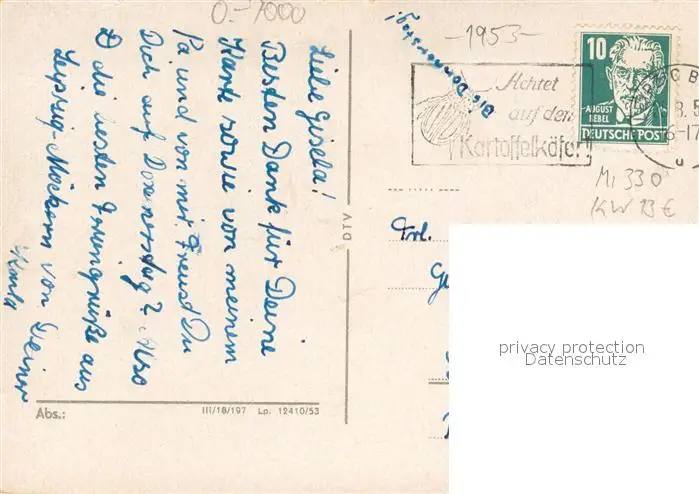 O.-7000
-1953-
Bis Donnerstag!
Liebe Gisela!
Besten Dank für Deine
Karte sowie von meinem
Pa und von mir. Freust Du
Dich auf Donnerstag? Also
die besten Innigrüße aus
Leipzig-Möckern von Deiner
Abs.:
III/18/197 Lp. 12410/53
DTV
Achtet
auf den
Kartoffelkäfer
10
AUGUST
BEBEL
DEUTSCHE POST
Mi 330
KW 13 €
Frl.
privacy protection
Datenschutz